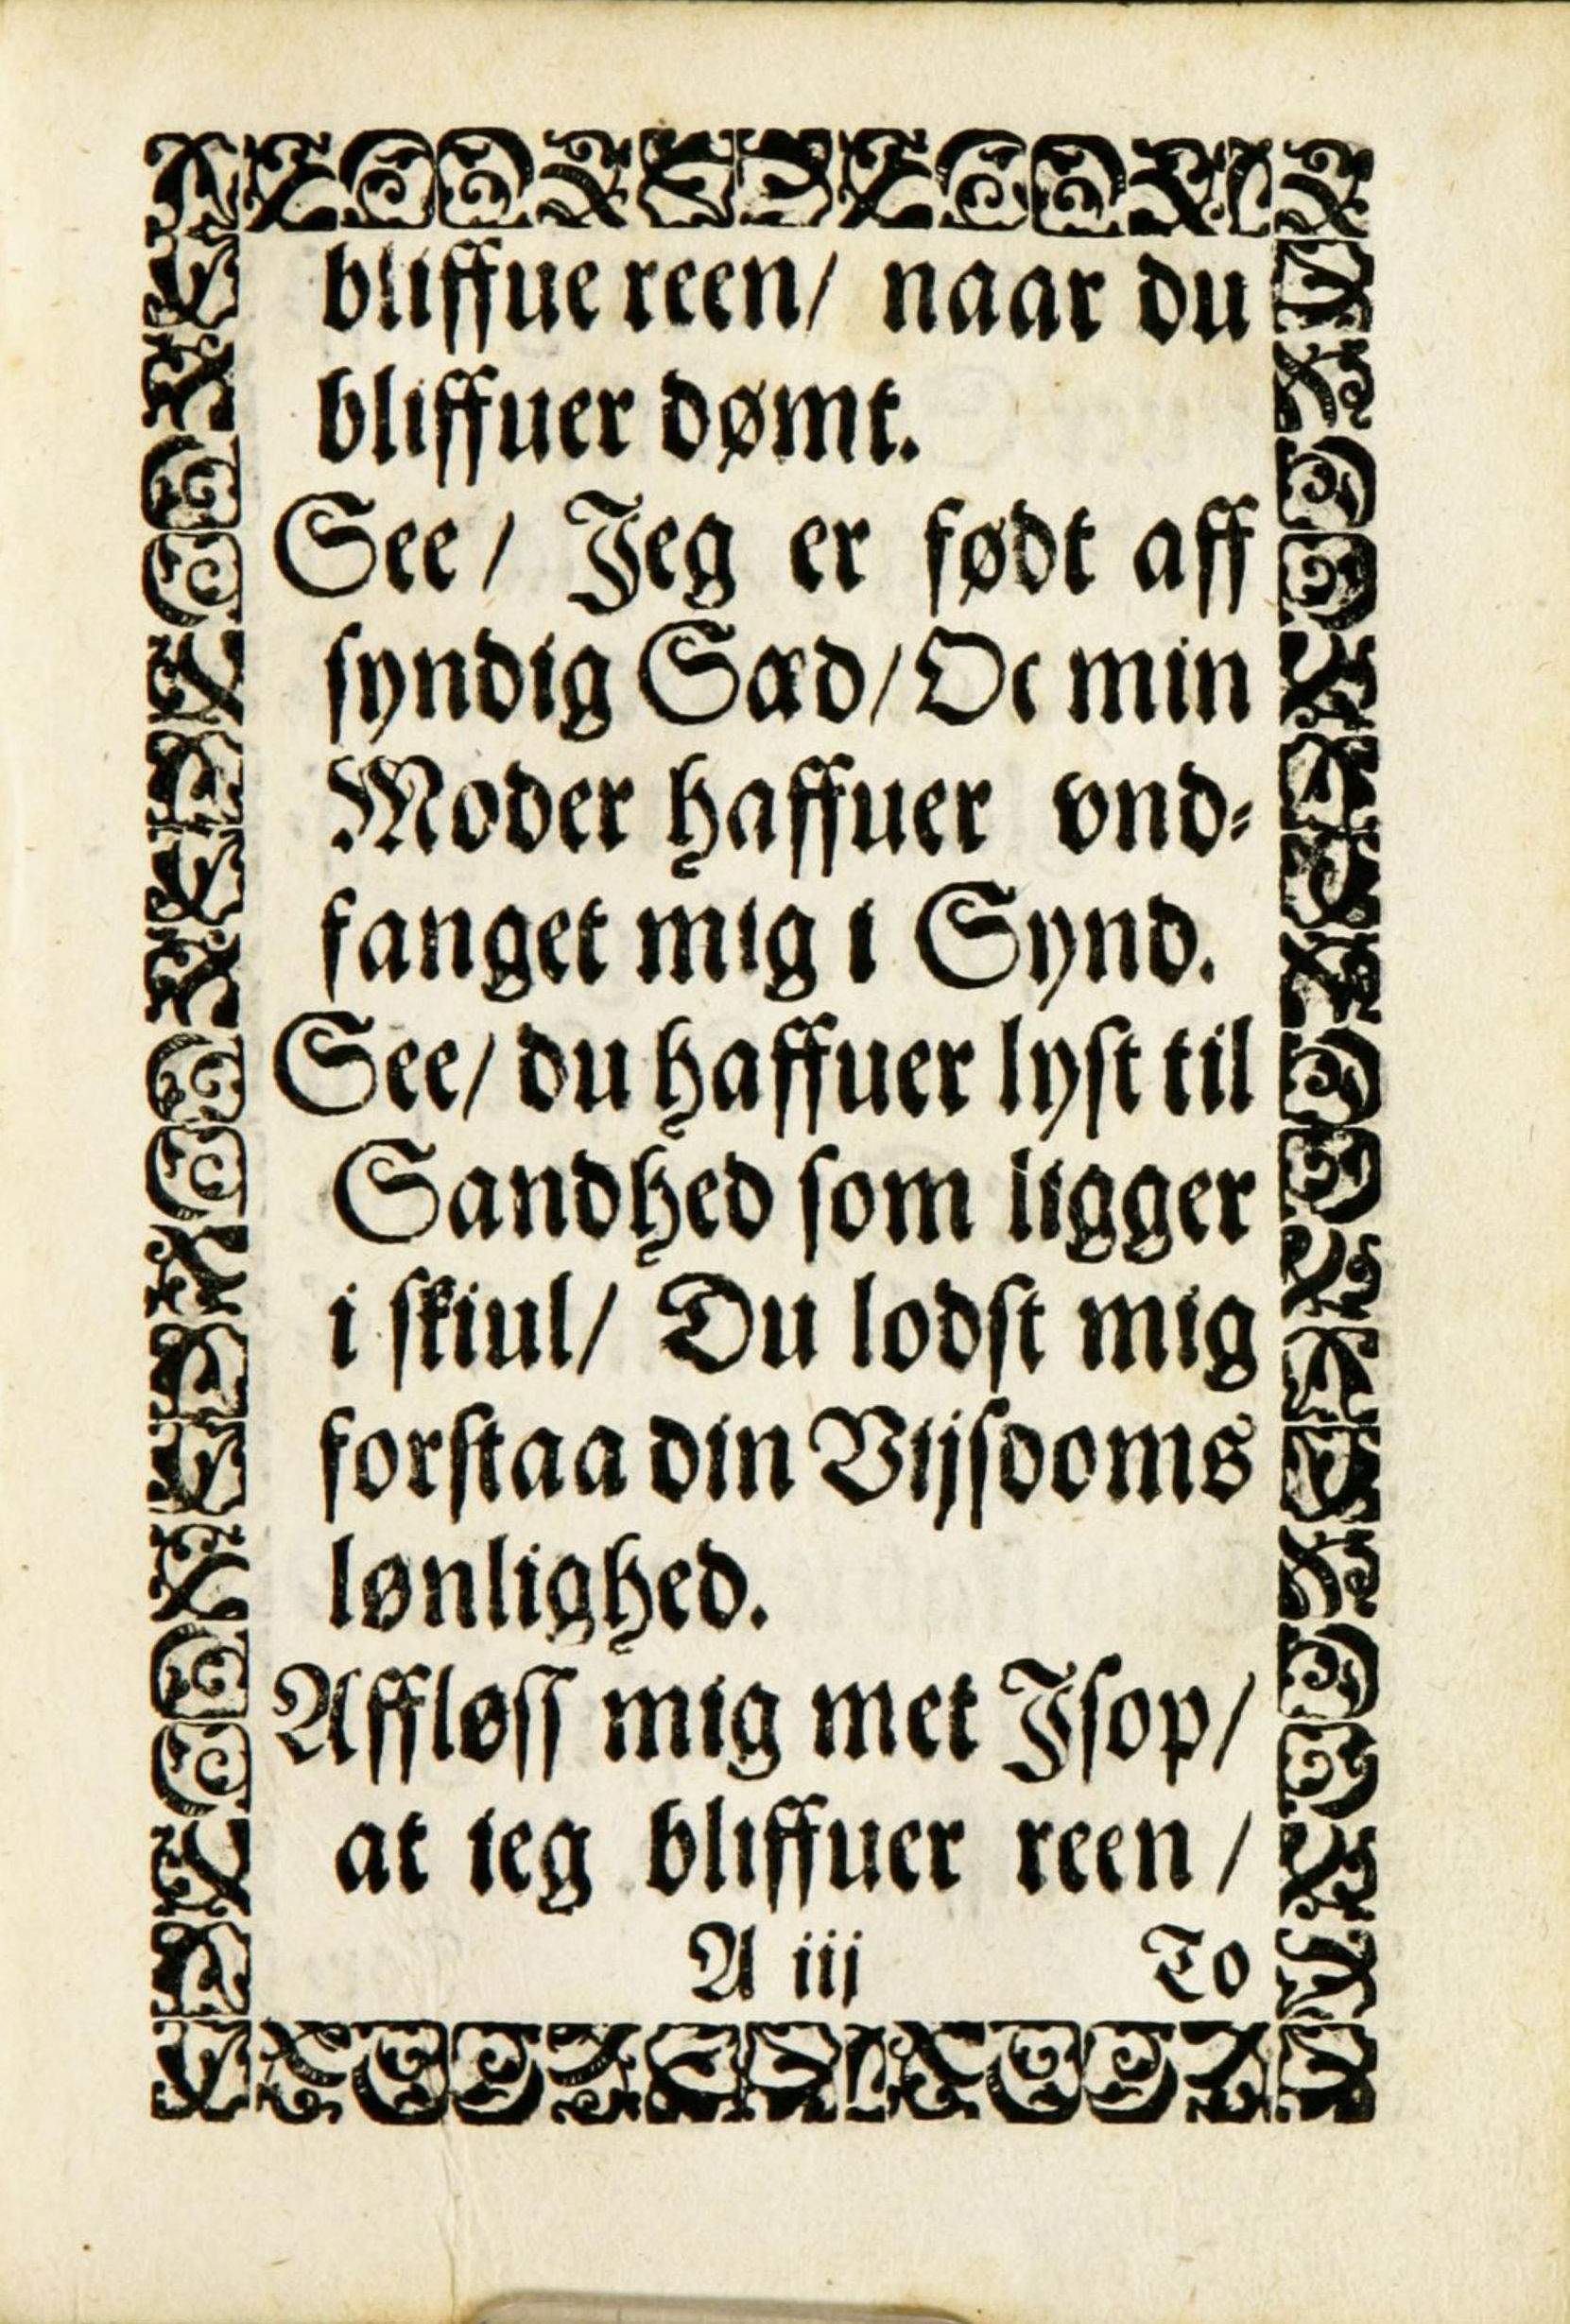 bliffue reen/ naar du
bliffuer dømt.
See/ Jeg er født aff
syndig Sæd/ Oc min
Moder haffuer vnd-
fanget mig i Synd.
See/ du haffuer lyst til
Sandhed som ligger
i skiul/ Du lodst mig
forstaa din Vijsdoms
lønlighed.
Affløss mig met Jsop/
at ieg bliffuer reen/
A iij To